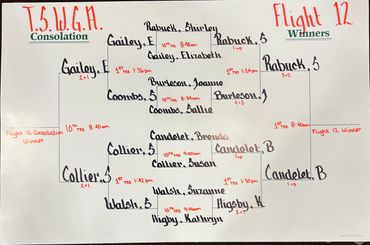 T.S.W.G.A.
Flight 12
Consolation
Winners
Rabuck, Shirley
Gailey, E
10th TEE 8:48am
Rabuck, S
1 up
Gailey, Elizabeth
Gailey, E
2+1
1st TEE 1:36pm
1st TEE 1:24pm
Rabuck, S
3+2
Burleson, Joanne
Coombs, S
10th TEE 8:54am
Burleson, J
4+3
Coombs, Sallie
Flight 12 Consolation
Winner
10th TEE 8:40am
1st TEE 8:40am
Flight 12 Winner
Candelet, Brenda
Collier, S
10th TEE 9:00am
Candelet, B
1 up
Collier, Susan
Collier, S
2+1
1st TEE 1:42pm
1st TEE 1:30pm
Candelet, B
1 up
Walsh, Suzanne
Walsh, S
10th TEE 9:06am
Higsby, K
Higby, Kathryn